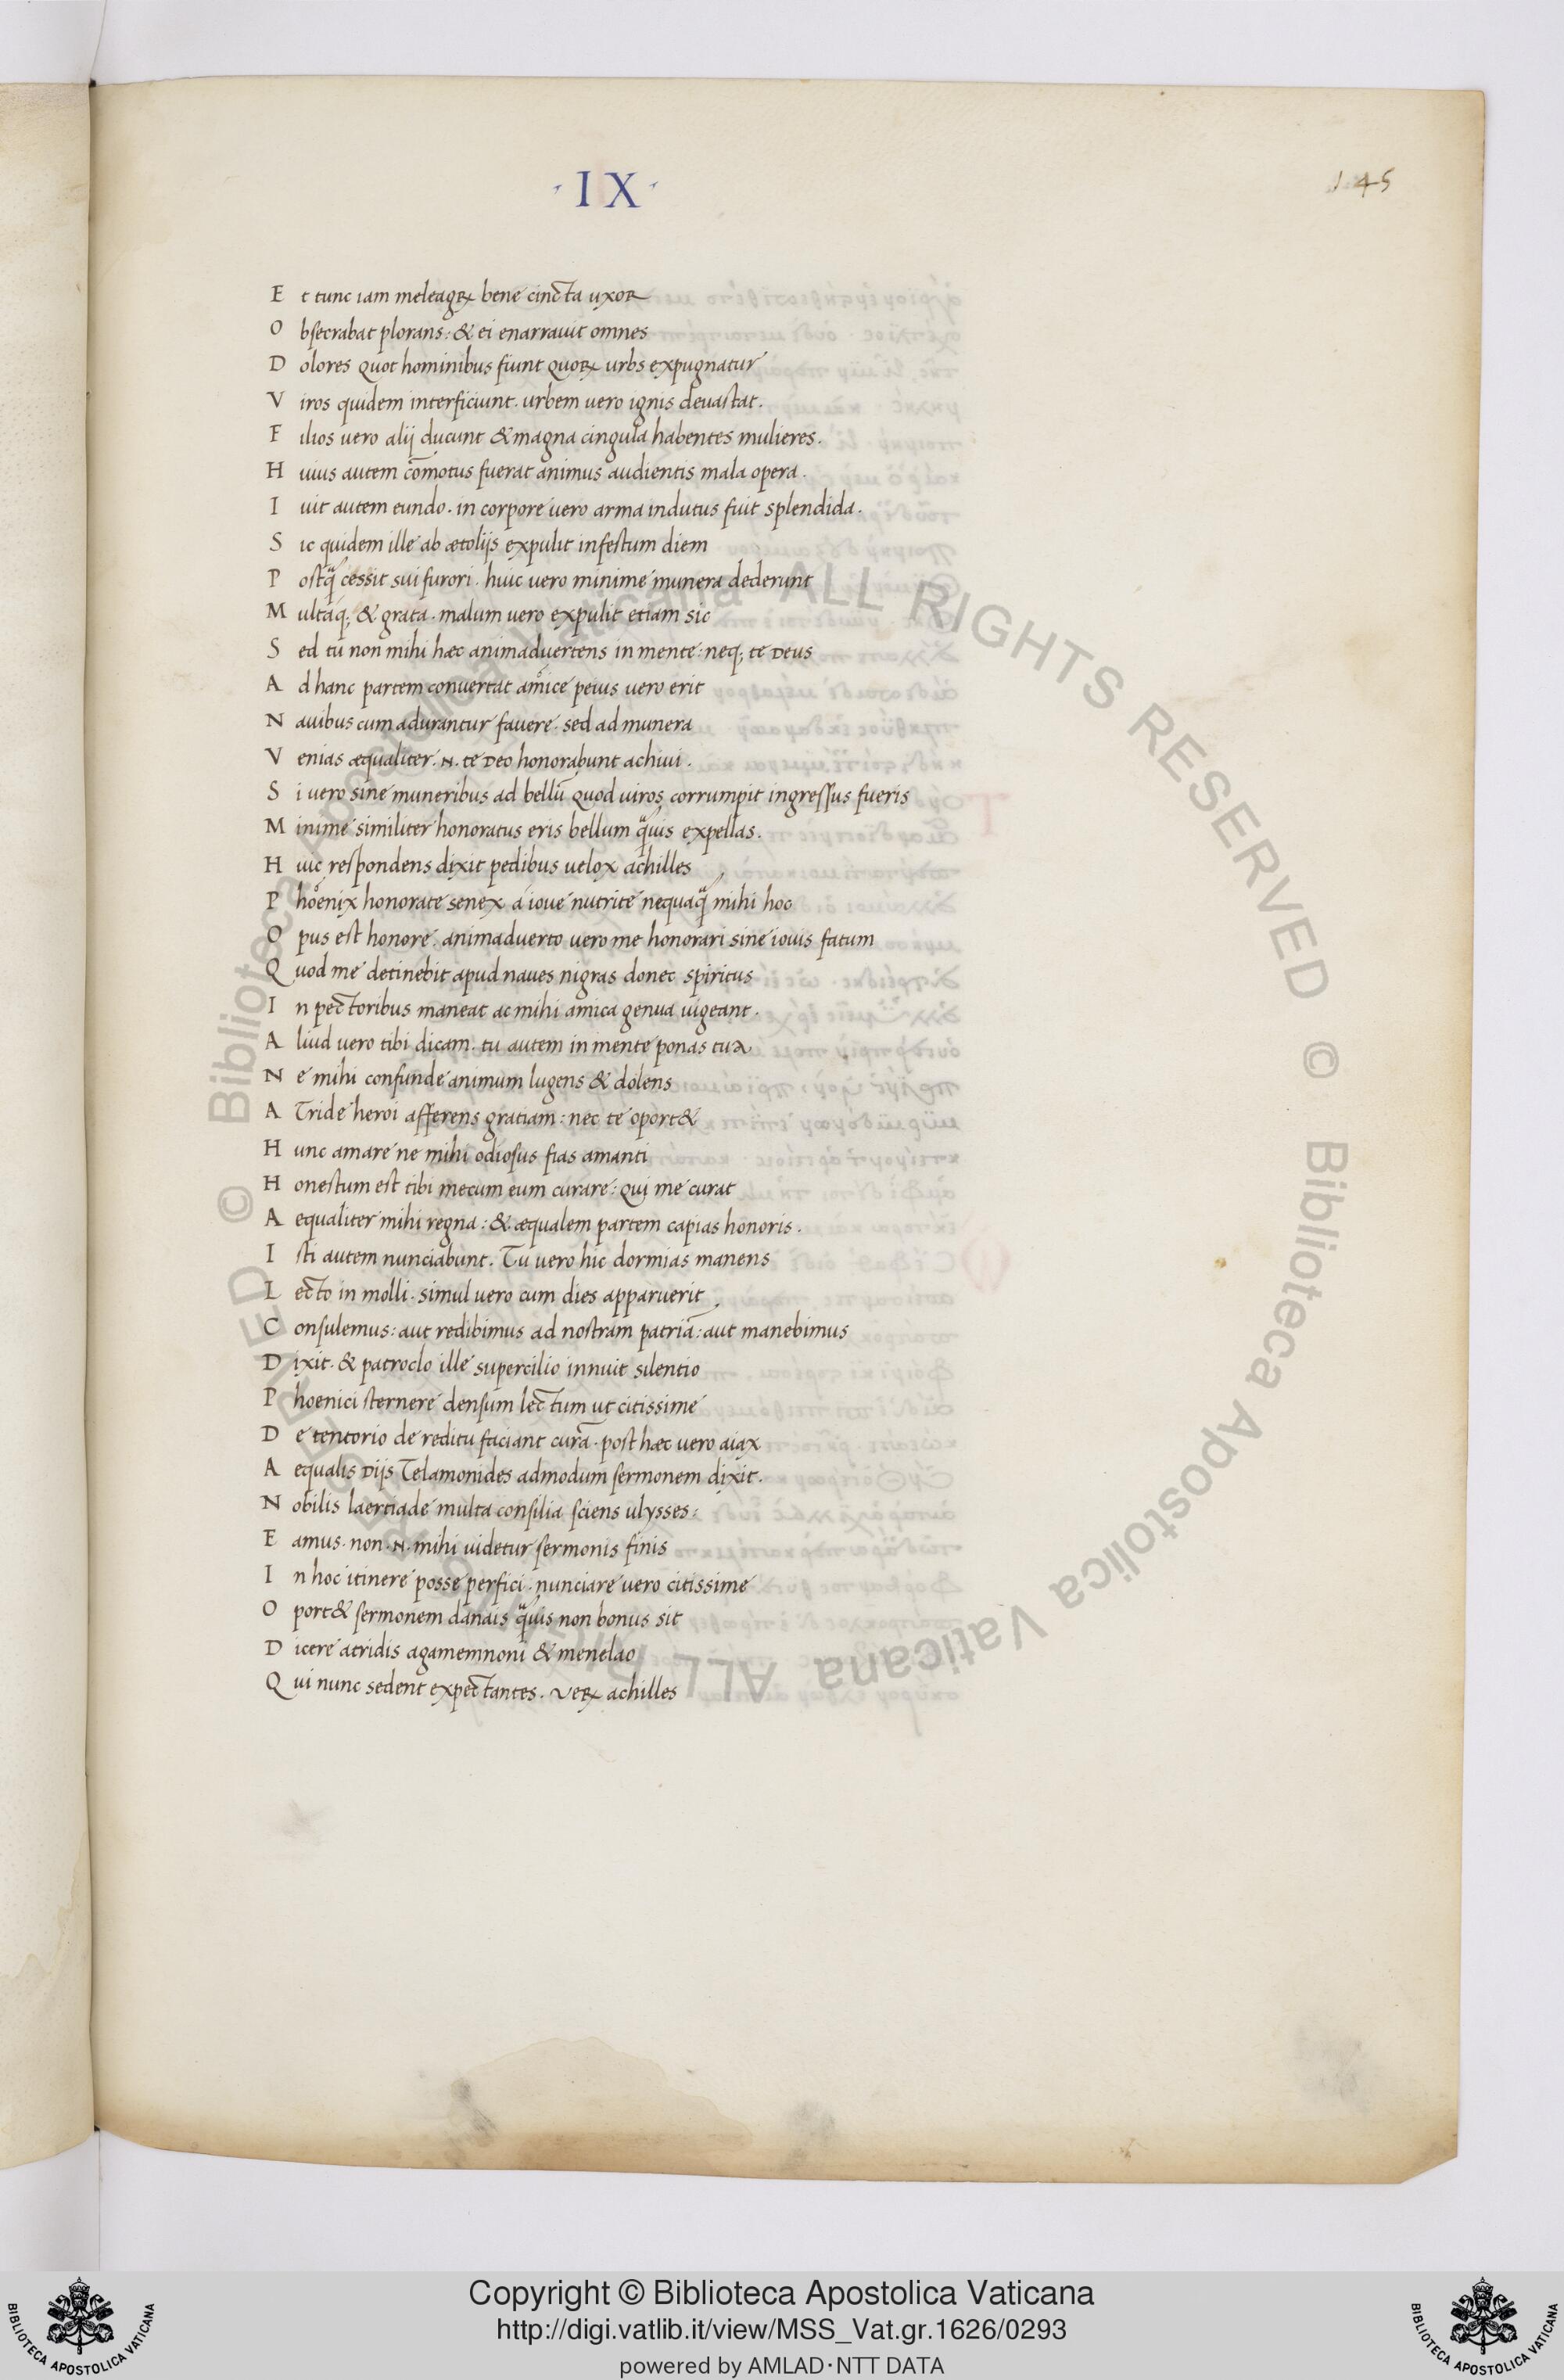 · I X ·
145
E t tunc iam meleagꝝ bene cincta uxor
O bsecrabat plorans: & ei enarrauit omnes
D olores quot hominibus fiunt quoꝝ urbs expugnatur
V iros quidem interficiunt. urbem uero ignis deuastat.
F ilios uero alij ducunt & magna cingula habentes mulieres.
H uius autem cōmotus fuerat animus audientis mala opera.
I uit autem eundo. in corpore uero arma indutus fuit splendida.
S ic quidem ille ab ætolijs expulit infestum diem
P ostq̃ cessit sui furori. huic uero minime munera dederunt
M ultaq; & grata. malum uero expulit etiam sic
S ed tu non mihi hæc animaduertens in mente: neq; te Deus
A d hanc partem conuertat amice peius uero erit
N auibus cum adurantur fauere. sed ad munera
V enias æqualiter. N. te Deo honorabunt achiui.
S i uero sine muneribus ad bellū quod uiros corrumpit ingressus fueris
M inime similiter honoratus eris bellum q̃uis expellas.
H uic respondens dixit pedibus uelox achilles
P hoenix honorate senex a ioue nutrite nequaq̃ mihi hoc
O pus est honore. animaduerto uero me honorari sine iouis fatum
Q uod me detinebit apud naues nigras donec spiritus
I n pectoribus maneat ac mihi amica genua uigeant.
A liud uero tibi dicam. tu autem in mente ponas tua.
N e mihi confunde animum lugens & dolens
A Tride heroi afferens gratiam: nec te oport&
H unc amare ne mihi odiosus fias amanti
H onestum est tibi mecum eum curare: qui me curat
A equaliter mihi regna: & æqualem partem capias honoris.
I sti autem nunciabunt. Tu uero hic dormias manens
L ecto in molli. simul uero cum dies apparuerit
C onsulemus: aut redibimus ad nostram patriā: aut manebimus
D ixit. & patroclo ille supercilio innuit silentio
P hoenici sternere densum lectum ut citissime
D e tentorio de reditu faciant curā. post hæc uero aiax
A equalis Dijs Telamonides admodum sermonem dixit.
N obilis laertiade multa consilia sciens ulysses:
E amus. non. N. mihi uidetur sermonis finis
I n hoc itinere posse perfici. nunciare uero citissime
O port& sermonem danais q̃uis non bonus sit
D icere atridis agamemnoni & menelao
Q ui nunc sedent expectantes. Veꝝ achilles
© Biblioteca Apostolica Vaticana ALL RIGHTS RESERVED © Biblioteca Apostolica Vaticana ALL RIGHTS RESERVED
Copyright © Biblioteca Apostolica Vaticana
http://digi.vatlib.it/view/MSS_Vat.gr.1626/0293
powered by AMLAD·NTT DATA
BIBLIOTECA APOSTOLICA VATICANA
BIBLIOTECA APOSTOLICA VATICANA